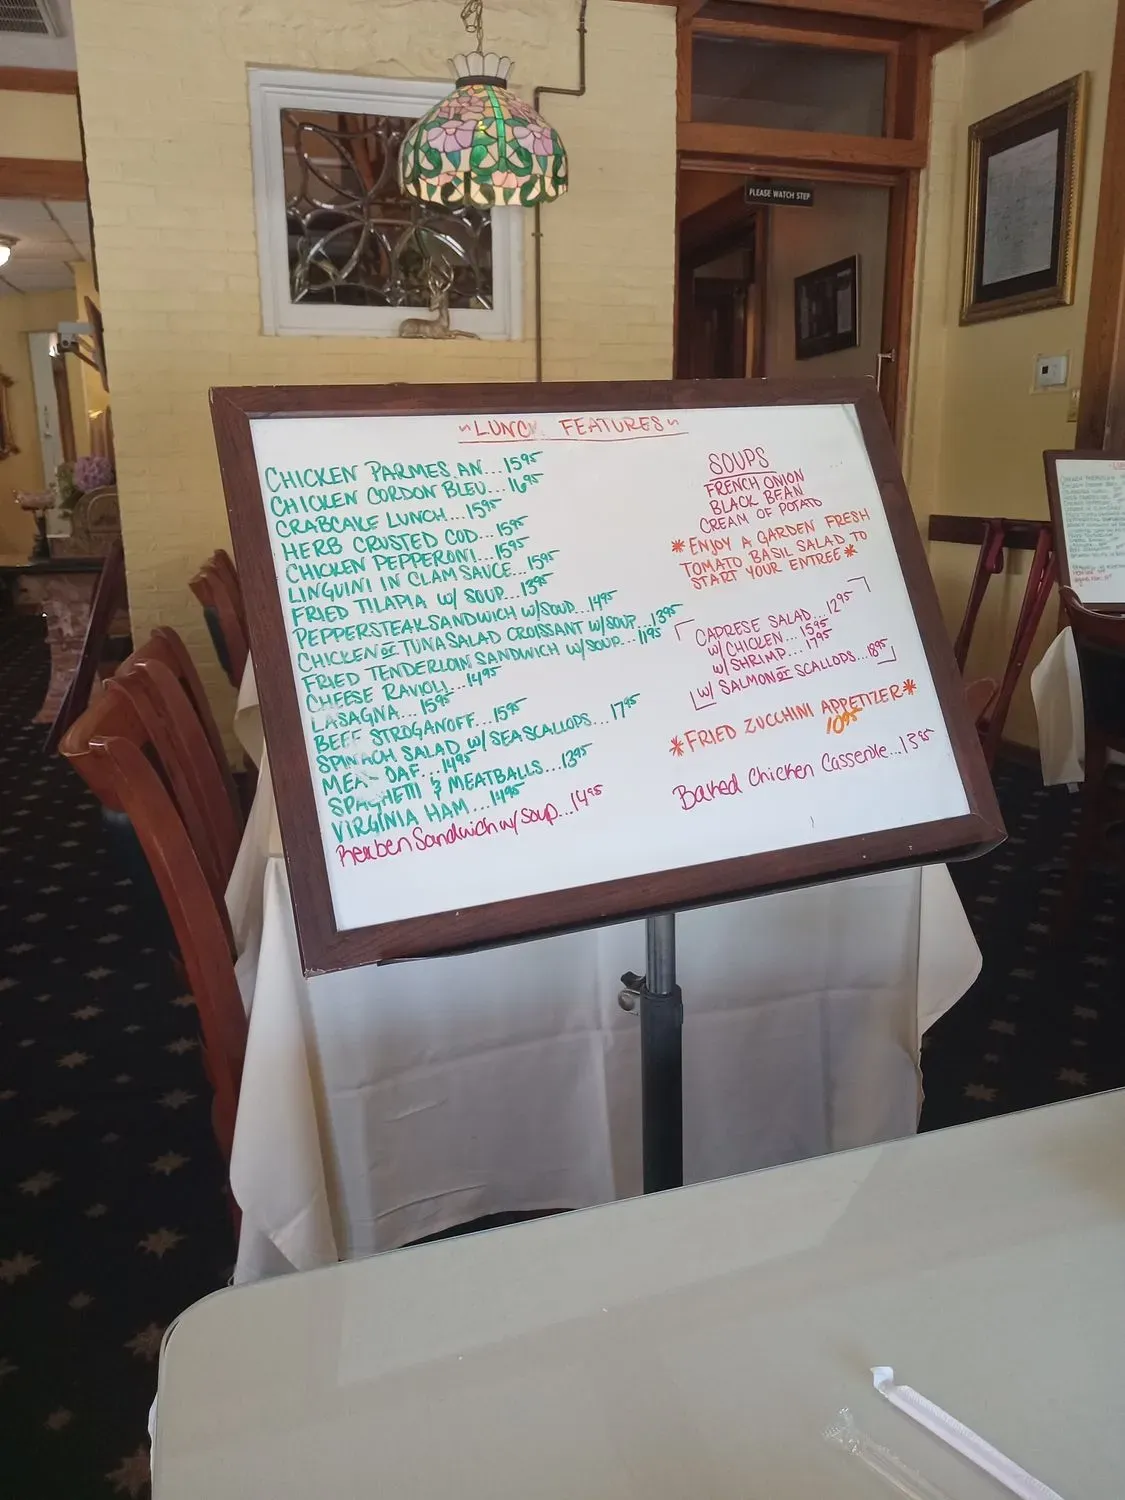 PLEASE WATCH STEP
~LUNCH FEATURES~
CHICKEN PARMESAN...15⁹⁵
CHICKEN CORDON BLEU...16⁹⁵
CRABCAKE LUNCH...15⁹⁵
HERB CRUSTED COD...15⁹⁵
CHICKEN PEPPERONI...15⁹⁵
LINGUINI IN CLAM SAUCE...15⁹⁵
FRIED TILAPIA W/ SOUP...13⁹⁵
PEPPERSTEAK SANDWICH W/SOUP...14⁹⁵
CHICKEN OR TUNA SALAD CROISSANT W/SOUP...13⁹⁵
FRIED TENDERLOIN SANDWICH W/SOUP...11⁹⁵
CHEESE RAVIOLI...14⁹⁵
LASAGNA...15⁹⁵
BEEF STROGANOFF...15⁹⁵
SPINACH SALAD W/ SEA SCALLOPS...17⁹⁵
MEAT OAF...14⁹⁵
SPAGHETTI & MEATBALLS...13⁹⁵
VIRGINIA HAM...14⁹⁵
Reuben Sandwich w/ soup...14⁹⁵
SOUPS
FRENCH ONION
BLACK BEAN
CREAM OF POTATO
*ENJOY A GARDEN FRESH
TOMATO BASIL SALAD TO
START YOUR ENTREE*
CAPRESE SALAD...12⁹⁵
W/ CHICKEN...15⁹⁵
W/ SHRIMP...17⁹⁵
W/ SALMON OR SCALLOPS...18⁹⁵
*FRIED ZUCCHINI APPETIZER*
10⁹⁵
Baked Chicken Casserole...13⁹⁵